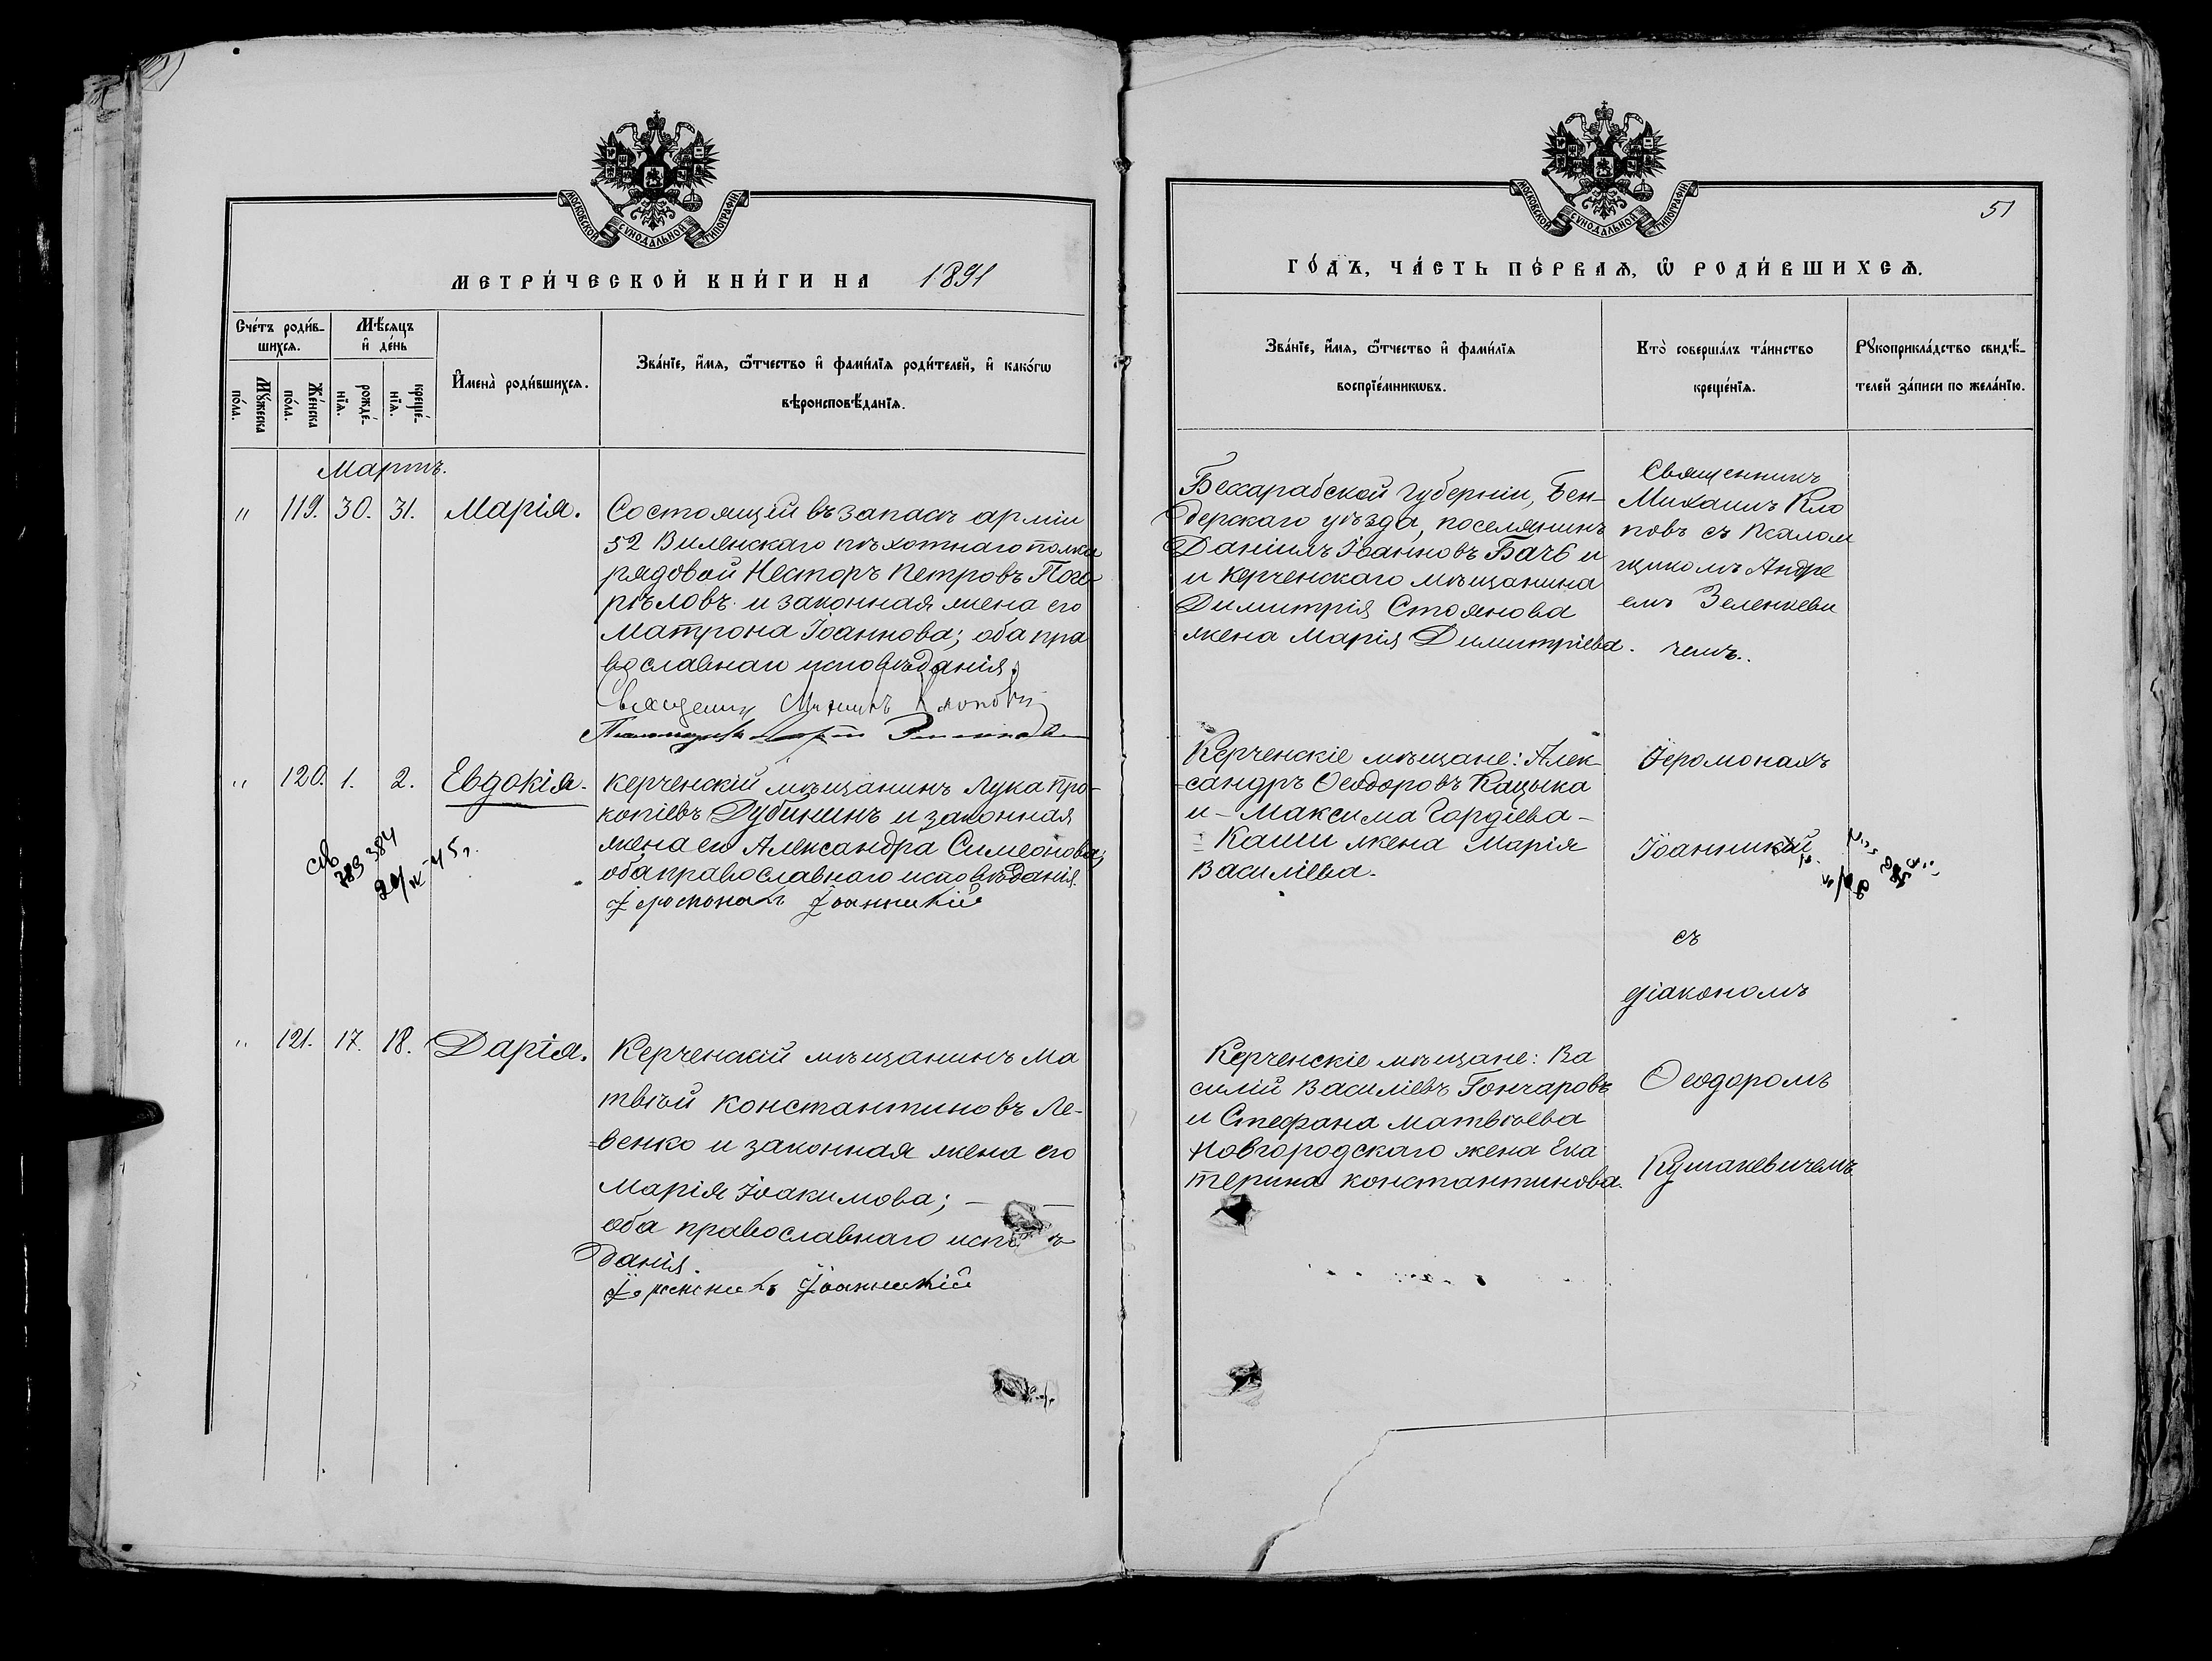 МОСКОВСКОЙ СѴНОДАЛЬНОЙ ТИПОГРАФІИ
МЕТРИ́ЧЕСКОЙ КНИ́ГИ НА 1891
Сче́тъ роди́в-
шихсѧ.
Мꙋ́жеска
по́ла.
Же́нска
по́ла.
Мѣ́сѧцъ
и҆ де́нь
рожде́-
нїѧ.
креще́-
нїѧ.
И҆мена̀ роди́вшихсѧ.
Зва́нїе, и҆́мѧ, ѻ҆́тчество и҆ фами́лїѧ роди́телей, и҆ како́гѡ
вѣроисповѣ́данїѧ.
Мартъ.
" 119. 30. 31. Марія.
Состоящій въ запасѣ арміи
52 Виленскаго пѣхотнаго полка
рядовой Несторъ Петровъ Пого
рѣловъ и законная жена его
Матрона Іоаннова; оба пра
вославнаго исповѣданія.
Священникъ Михаилъ Клоповъ
" 120. 1. 2. Евдокія.
Керченскій мѣщанинъ Лука Про-
копіевъ Дубининъ и законная
жена его Александра Симеонова;
оба православнаго исповѣданія.
Іеромонахъ Іоанникій
св
383 384
20/IV-45 г.
" 121. 17. 18. Дарія.
Керченскій мѣщанинъ Ма
твѣй Константиновъ Ле-
=венко и законная жена его
Марія Іоакимова; —
оба православнаго
данія.
Іеромонахъ Іоанникій
МОСКОВСКОЙ СѴНОДАЛЬНОЙ ТИПОГРАФІИ
51
ГО́ДЪ, ЧА́СТЬ ПЕ́РВАѦ, Ѽ РОДИ́ВШИХСѦ.
Зва́нїе, и҆́мѧ, ѻ҆́тчество и҆ фами́лїѧ
воспрїе́мникѡвъ.
Кто̀ соверша́лъ та́инство
креще́нїѧ.
Рꙋкоприкла́дство свидѣ́-
телей за́писи по жела́нїю.
Бессарабской губерніи, Бен-
дерскаго уѣзда, поселянинъ
Даніилъ Іоанновъ Бачъ и
и Керченскаго мѣщанина
Димитрія Стоянова
жена Марія Димитріева.
Священникъ
Михаилъ Кло
повъ съ Псалом
щикомъ Андре
емъ Зеленкеви
чемъ.
Керченскіе мѣщане: Алек-
сандръ Ѳеодоровъ Кацыка
и – Максима Гордіева –
= Каши жена Марія
Василіева.
Іеромонахъ
Іоанникій
съ
діакономъ
Керченскіе мѣщане: Ва
силій Василіевъ Гончаровъ
и Стефана Матвѣева
Новгородскаго жена Ека
терина Константинова.
Ѳеодоромъ
Кушакевичемъ